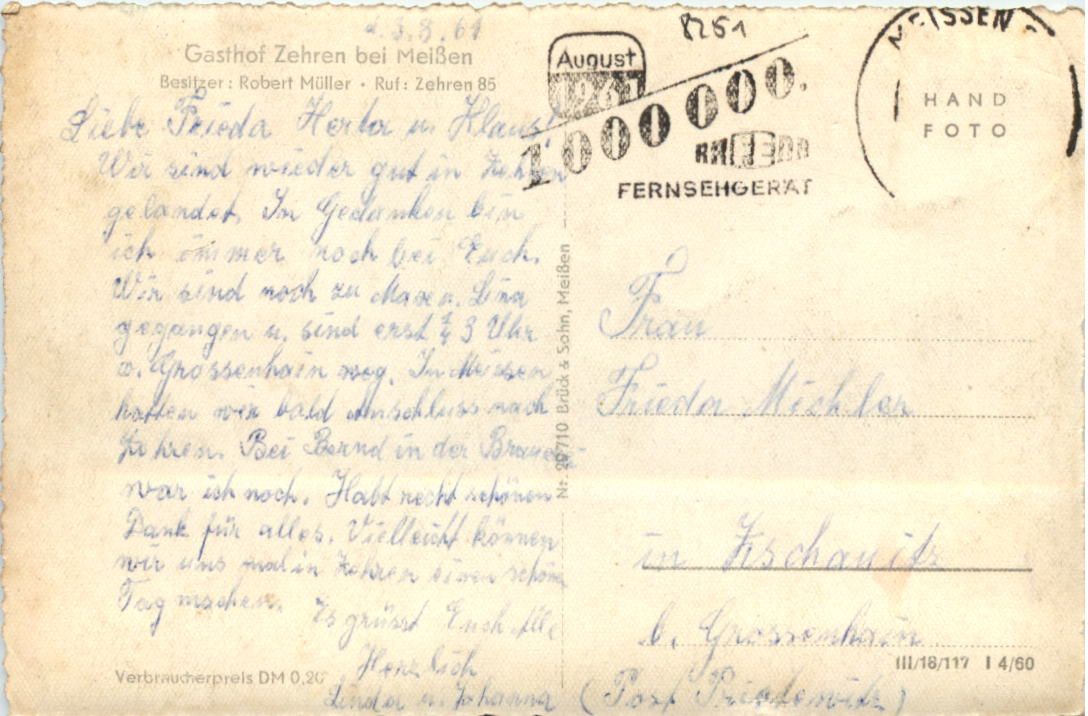 d. 3.8.61
Gasthof Zehren bei Meißen
Besitzer: Robert Müller · Ruf: Zehren 85
Liebe Frieda Herta u. Klaus!
Wir sind wieder gut in Zehren
gelandet. In Gedanken bin
ich immer noch bei Euch.
Wir sind noch zu Max u. Lina
gegangen u. sind erst 3 Uhr
v. Grossenhain weg. In Meissen
hatten wir bald Anschluss nach
Zehren. Bei Bernd in der Brauerei
war ich noch. Habt recht schönen
Dank für alles. Vielleicht können
wir uns mal in Zehren einen schönen
Tag machen.
Es grüsst Euch Alle
Herzlich
Linda u. Johanna
Verbraucherpreis DM 0,20
Nr. 29710 Brück & Sohn, Meißen
8251
August
1961
1000000.
RAFENA
FERNSEHGERÄT
MEISSEN
HAND
FOTO
Frau
Frieda Michler
in Zschauitz
b. Grossenhain
III/18/117 I 4/60
(Post Priestewitz)